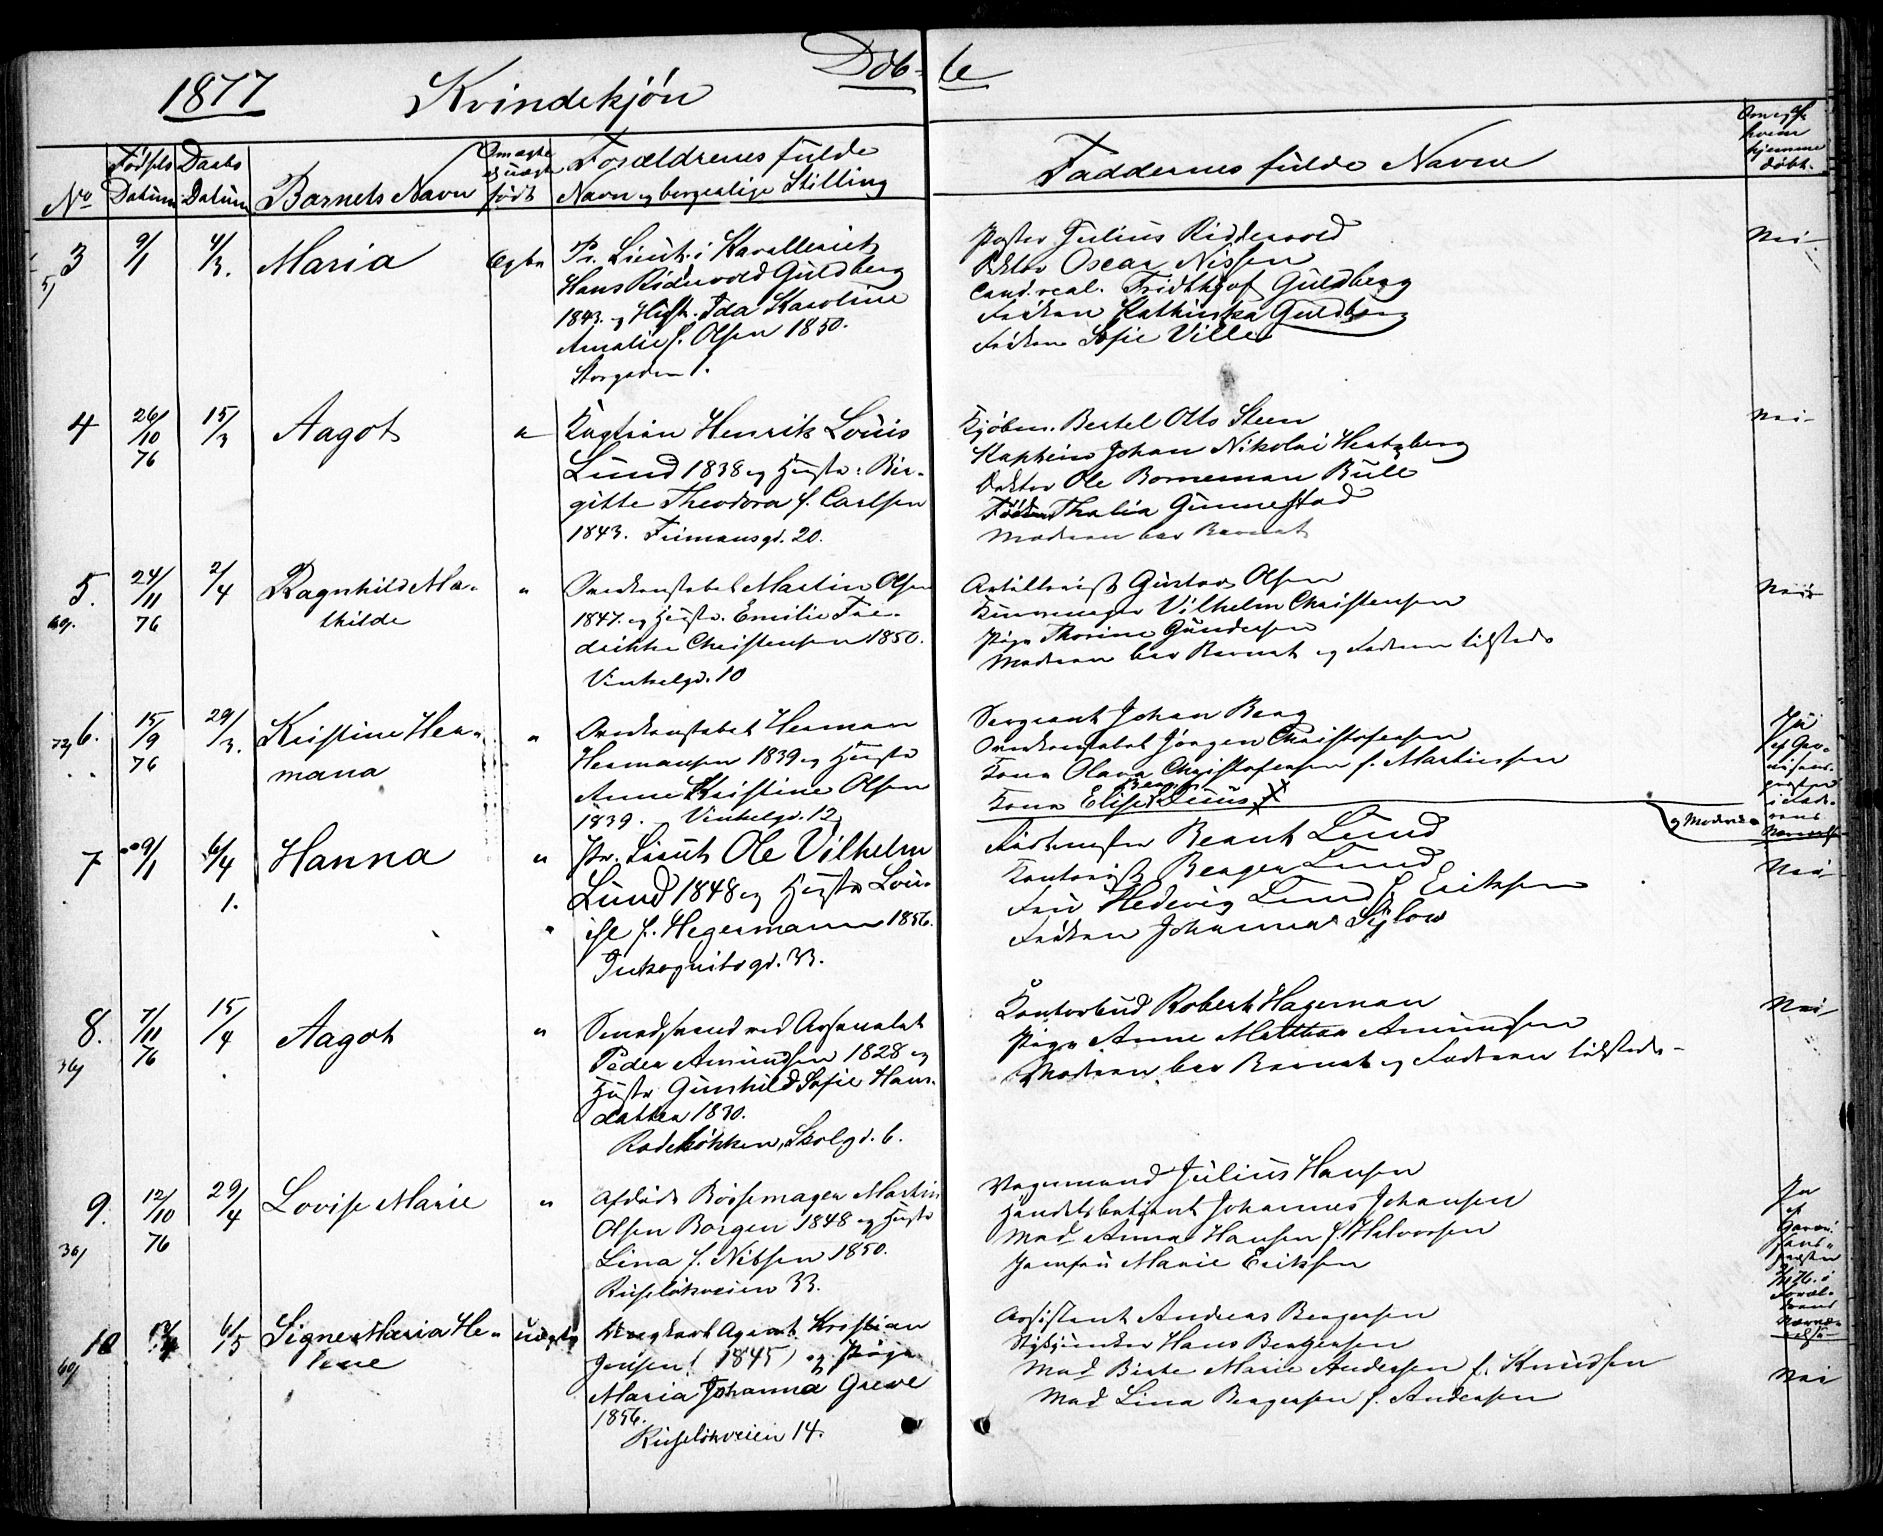 1877 Kvindekjön Döb- te
No Födsels Datum Daabs Datum Barnets Navn Om ægte og uægte födt Forældrenes fulde Navn og borgerlige Stilling Faddernes fulde Navne Om og af hvem hjemme döbt.
3 9/1 4/3. Maria Egte
Pr. Lieut. i Kavalleriet
Hans Ridervold Guldberg
1843. og Hustr. Ida Karoline
Amalie f. Olsen 1850.
Storgaden 1.
Pastor Julius Riddervold
Doktor Oscar Nissen
Cand. real. Fridthjof Guldberg
Fröken Kathinka Guldberg
Fröken Sofie Ville
Nei
4 26/10 76 15/3 Aagot "
Kaptain Henrik Louis
Lund 1838 og Hustr: Bir-
gitte Theodora f. Carlsen
1843. Tiimansgd. 20.
Kjöbm. Bertel Otto Steen
Kaptein Johan Nikolai Hertzberg
Doktor Ole Borneman Bull
Fröken Thalia Gunnestad
Moderen bar Barnet
Nei
5. 24/11 76 2/4 Ragnhild Ma-
thilde "
Overkonstabel Martin Olsen
1847. og Hustr. Emilie Fre-
drikke Christensen 1850.
Vinkelgd. 10
Artillerist Gustav Olsen
Vilhelm Christensen
Pige Thorine Gundersen
Moderen bar Barnet og Faderen tilstede
Nei
6. 15/9 76 29/3. Kristine Her-
mana "
Overkonstabel Herman
Hermansen 1839 og Hustr
Anne Kristine Olsen
1839. Vinkelgd. 12
Sergeant Johan Berg
Overkonstabel Jörgen Christofersen
Kone Olava Christofersen f. Martinsen
Kone Elise
og Moderen
7 9/1 6/4 1. Hanna "
Pr. Lieut Ole Vilhelm
Lund 1848 og Hustr Lou-
ise f. Hegermann 1856.
Inkognitogd. 33.
Bernt Lund
Kontorist Berger Lund
Fru Hedevig Lund f. Eriksen
Fröken Johanna Sylow
Nei
8. 7/11 76 15/4 Aagot "
Smedsvend ved Arsenalet
Peder Amundsen 1828 og
Hustr Gunhild Sofie Hans-
datter 1830.
Rodelökken, Skolgd. 6.
Kontorbud Robert Hageman
Pige Anne Mathea Amundsen
Moderen bar Barnet og Faderen tilstede
Nei
9. 12/10 76 29/4 Lovise Marie "
Afdöde Bössemager Martin
Olsen Borgen 1848 og Hustr
Lina f. Nilsen 1850.
Ruselökveien 33.
Vognmand Julius Hansen
Handelsbetjent Johannes Johansen
Mad Anna Hansen f. Halvorsen
Jomfru Marie Eriksen
Ja
af
Garni-
sons-
præsten
i
Foræl-
drenes
Nærvæ-
relse
10 6/5 Signe Maria He-
lene uægte
Agent Kristian
Jensen (1845) og Pige
Maria Johanna Greve
1856.
Ruselökveien 14.
Assistent Andreas Bergersen
Hans Bergersen
Mad Birte Marie Andersen f. Knudsen
Mad Lina Bergersen f. Andersen
Nei